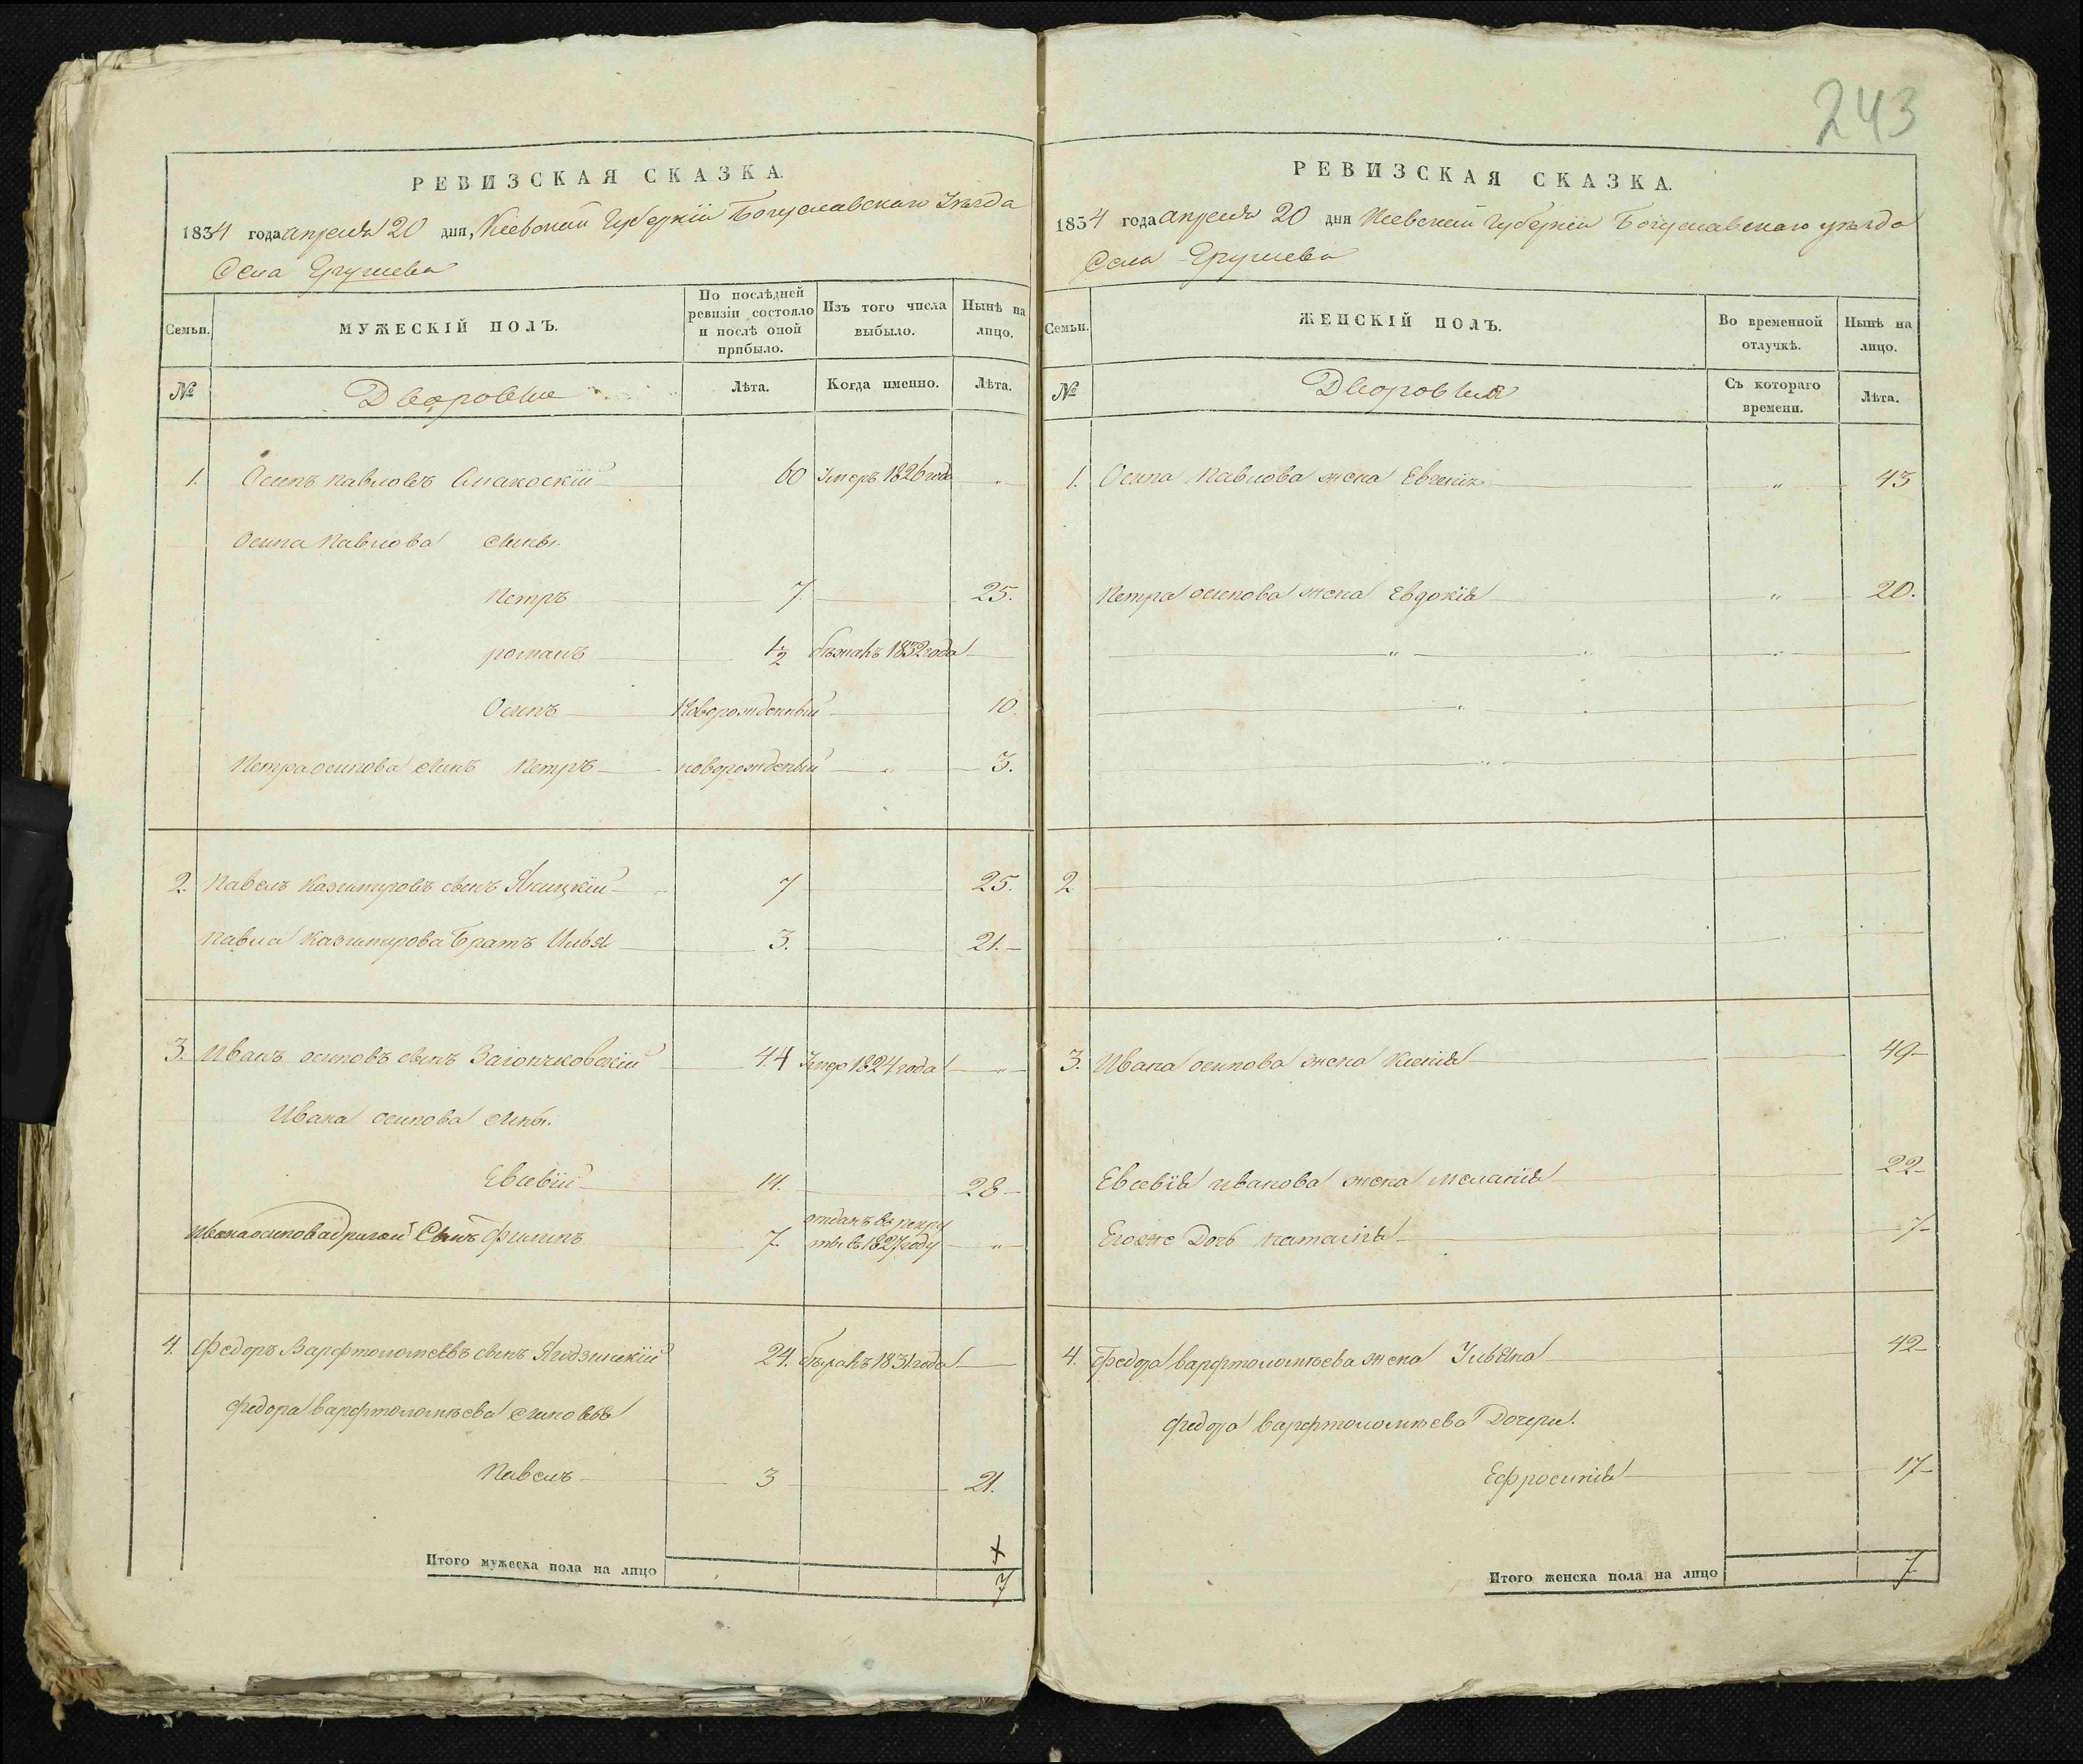 243
РЕВИЗСКАЯ СКАЗКА.
1834 года апреля 20 дня, Киевской Губернїи Богуславскаго Уѣзда
Села Грушева
Семьи.
МУЖЕСКІЙ ПОЛЪ.
По послѣдней ревизіи состояло и послѣ оной прибыло.
Изъ того числа выбыло.
Нынѣ на лицо.
№
Дворовые
Лѣта.
Когда именно.
Лѣта.
1. Осипъ Павловъ 60 Умеръ 1826 года „
Осипа Павлова сыны.
Петръ 7. 25.
романъ 1/2 бѣжалъ 1832 года
Осипъ Новорожденный 10.
Петра осипова сынъ Петръ новорожденый „ 3.
2. Павелъ Казимировъ сынъ Яницкїй 7 25.
Павла Казимирова братъ Илья 3. 21.
3. Иванъ осиповъ сынъ Заіончковскїй 44 Умер 1824 года „
Ивана осипова сыны.
Евсевїй 14. 28
Ивана осипова другой Сынъ Филипъ 7. отданъ въ рекру
ты въ 1827 году „
4. Федоръ Варфтоломеевъ сынъ 24. бѣжалъ 1831 года
Федора Варфтоломѣева сыновья
Павелъ 3 21.
Итого мужеска пола на лицо 7
РЕВИЗСКАЯ СКАЗКА.
1834 года апреля 20 дня Киевской Губернїи Богуславскаго уѣзда
Села Грушева
Семьи.
ЖЕНСКІЙ ПОЛЪ.
Во временной отлучкѣ.
Нынѣ на лицо.
№
Дворовыя
Съ котораго времени.
Лѣта.
1. Осипа Павлова жена Евгенїя „ 43
Петра осипова жена Евдокїя „ 20.
2
3. Ивана осипова жена Ксенїя 49
Евсевїя иванова жена Меланїя 22
Егоже Дочь наталїя 7
4. Федора варфтоломѣева жена Ульяна 42
Федора варфтоломѣева Дочери.
Ефросинїя 17
Итого женска пола на лицо 7